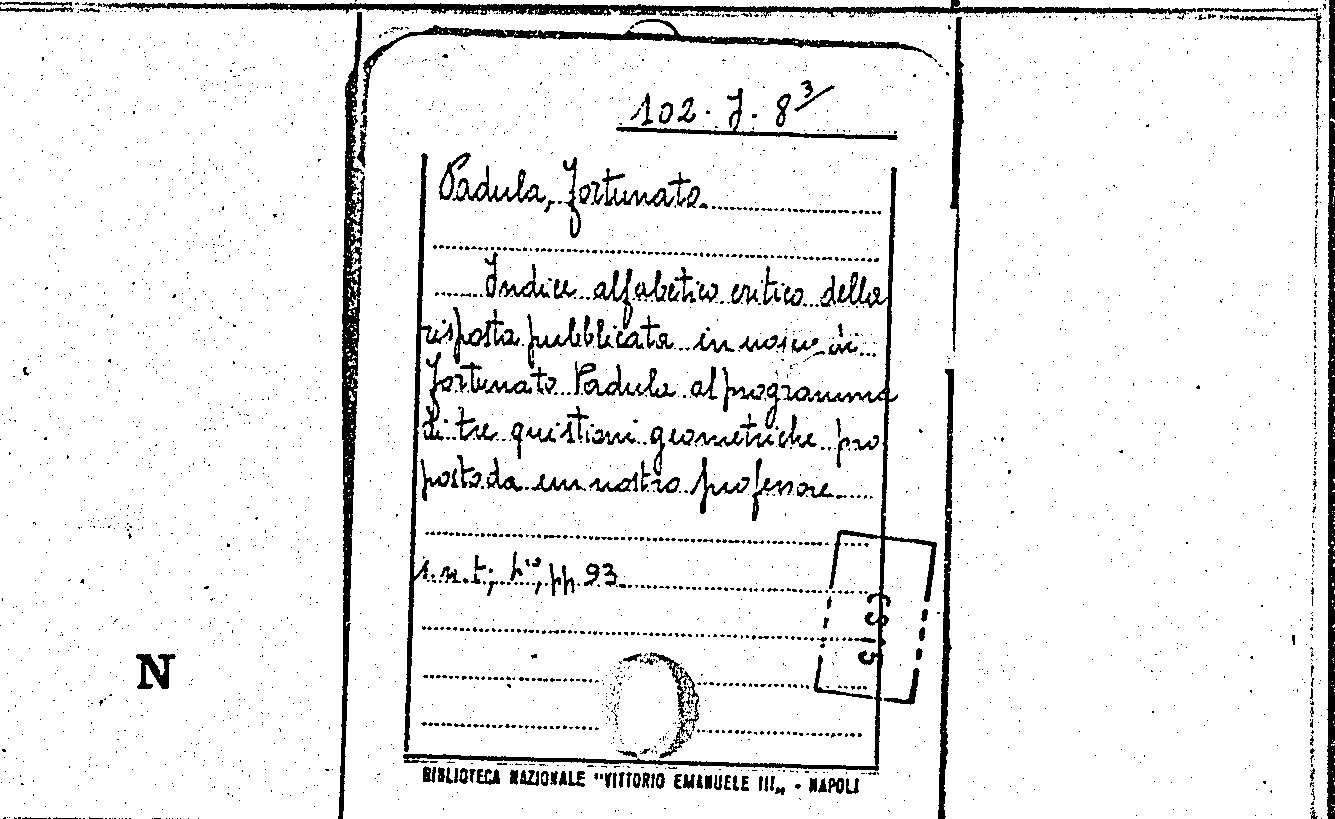 102. J. 8 3/
Padula, Fortunato.
Indice alfabetico critico della
risposta pubblicata in nome di
Fortunato Padula al programma
di tre questioni geometriche pro
posto da un nostro professore
s.n.t; in°, pp 93.
N
BIBLIOTECA NAZIONALE "VITTORIO EMANUELE III„ - NAPOLI